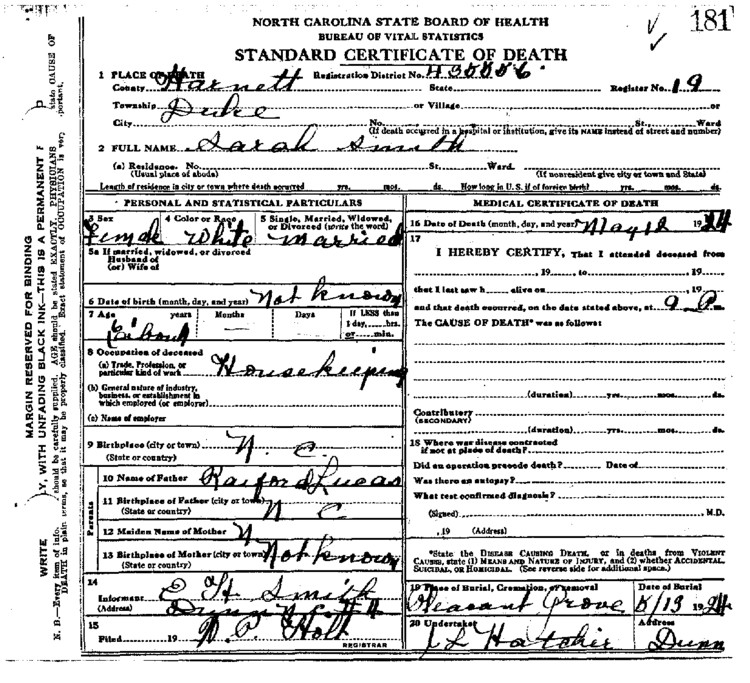 181
NORTH CAROLINA STATE BOARD OF HEALTH
BUREAU OF VITAL STATISTICS
STANDARD CERTIFICATE OF DEATH
1 PLACE OF DEATH Registration District No.
County Harnett State Register No. 19
Township Duke or Village or
City No. St., Ward
(If death occurred in a hospital or institution, give its NAME instead of street and number)
2 FULL NAME Sarah Smith
(a) Residence. No. St., Ward.
(Usual place of abode) (If nonresident give city or town and State)
Length of residence in city or town where death occurred yrs. mos. ds. How long in U. S. if of foreign birth? yrs. mos. ds.
PERSONAL AND STATISTICAL PARTICULARS
3 Sex 4 Color or Race 5 Single, Married, Widowed, or Divorced (write the word)
Female White married
5a If married, widowed, or divorced
Husband of
(or) Wife of
6 Date of birth (month, day, and year) Not known
7 Age years Months Days If LESS than
1 day, hrs.
or min.
8 Occupation of deceased
(a) Trade, Profession, or
particular kind of work Housekeeping
(b) General nature of industry,
business, or establishment in
which employed (or employer)
(c) Name of employer
9 Birthplace (city or town) N. C.
(State or country)
Parents
10 Name of Father Raiford Lucas
11 Birthplace of Father (city or town) N C
(State or country)
12 Maiden Name of Mother N
13 Birthplace of Mother (city or town) Not known
(State or country)
14
Informant E H Smith
(Address) Dunn N. C. #4
15
Filed 19 Holt
REGISTRAR
MEDICAL CERTIFICATE OF DEATH
16 Date of Death (month, day, and year) May 12 1924
17
I HEREBY CERTIFY, That I attended deceased from
, 19 to , 19
that I last saw h alive on , 19
and that death occurred, on the date stated above, at 9 P m.
The CAUSE OF DEATH* was as follows:
(duration) yrs. mos. ds.
Contributory
(SECONDARY)
(duration) yrs. mos. ds.
18 Where was disease contracted
if not at place of death?
Did an operation precede death? Date of
Was there an autopsy?
What test confirmed diagnosis?
(Signed) , M.D.
, 19 (Address)
*State the DISEASE CAUSING DEATH, or in deaths from VIOLENT
CAUSES, state (1) MEANS AND NATURE OF INJURY, and (2) whether ACCIDENTAL,
SUICIDAL, OR HOMICIDAL. (See reverse side for additional space.)
19 Place of Burial, Cremation, or Removal Date of Burial
Pleasant Grove 5/13 1924
20 Undertaker Address
J L Hatcher Dunn
MARGIN RESERVED FOR BINDING
WRITE Y, WITH UNFADING BLACK INK—THIS IS A PERMANENT
N. B.—Every item of info. should be carefully supplied. AGE should be stated EXACTLY. PHYSICIANS state CAUSE OF
DEATH in plain terms, so that it may be properly classified. Exact statement of OCCUPATION is very portant.